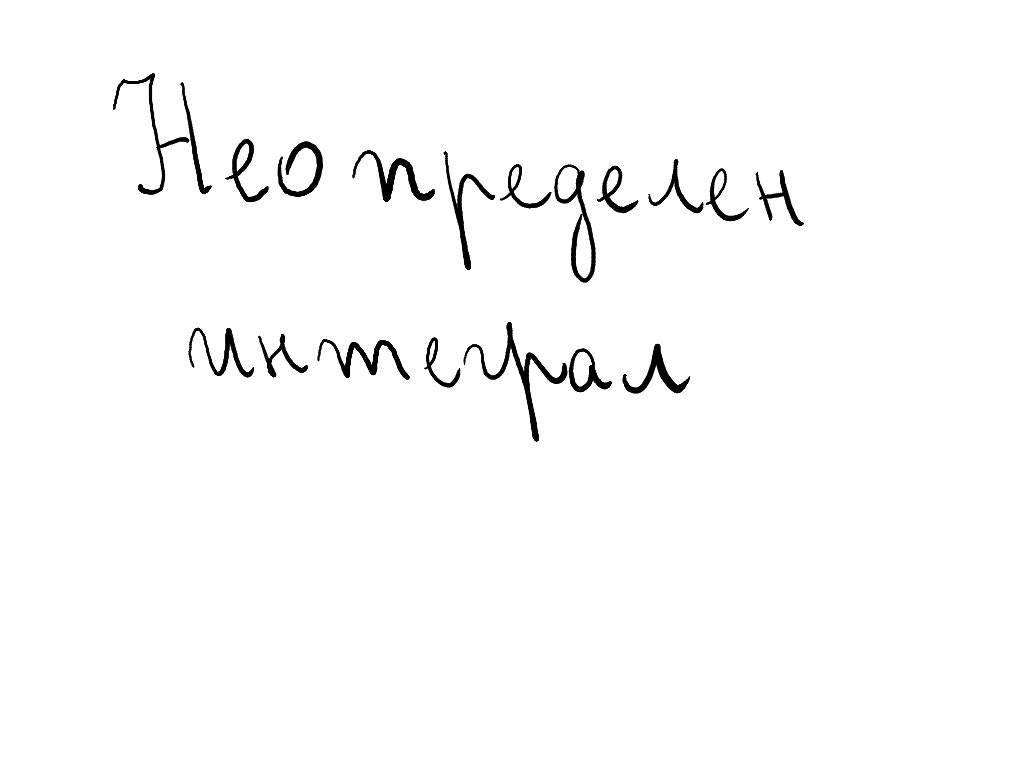 Неопределен
интеграл